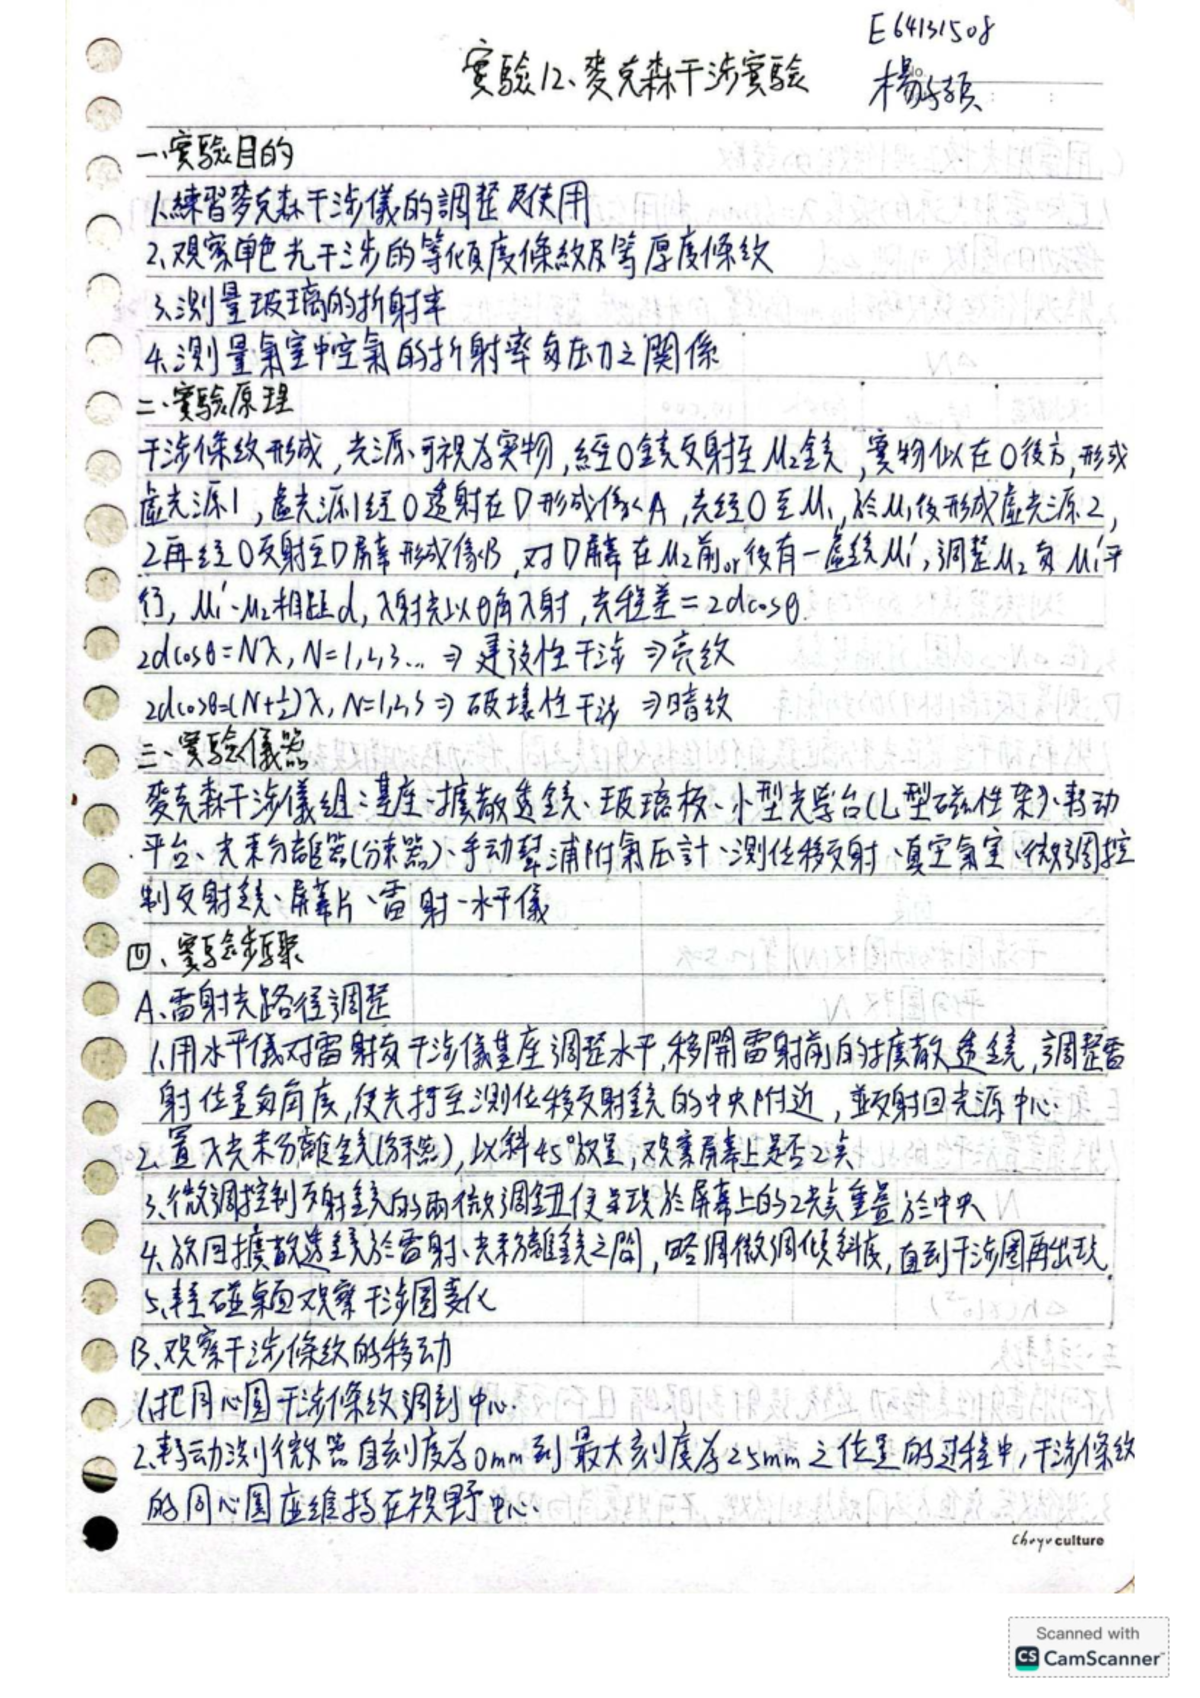 E64131508
實驗12、麥克森干涉實驗
楊
一、實驗目的
1.練習麥克森干涉儀的調整及使用
2.观察单色光干涉的等傾度條紋及等厚度條紋
3.測量玻璃的折射率
4.測量氣室中空氣的折射率与压力之關係
二、實驗原理
干涉條紋形成,光源可視为实物,經O鏡反射至M₂鏡,實物似在O後方,形成
虛光源1,虛光源1經O透射在D形成像A,光經O至M₁,於M₁後形成虛光源2,
2再經O反射至D屏幕形成像B,对D屏幕在M₂前or後有一虛鏡M₁',調整M₂与M₁'平
行,M₁'、M₂相距d,入射光以θ角入射,光程差=2dcosθ
2dcosθ=Nλ,N=1,2,3...⇒建設性干涉⇒亮紋
2dcosθ=(N+½)λ,N=1,2,3⇒破壞性干涉⇒暗紋
三、實驗儀器
麥克森干涉儀組:基座、擴散透鏡、玻璃板、小型光學台(L型磁性架)、轉动
平台、光束分離器(分束器)、手动幫浦附氣压計、測位移反射、真空氣室、微調控
制反射鏡、屏幕片、雷射、水平儀
四、實驗步驟
A.雷射光路徑調整
1.用水平儀对雷射与干涉儀基座調整水平,移開雷射前的擴散透鏡,調整雷
射位置与角度,使光打至測位移反射鏡的中央附近,並反射回光源中心.
2.置入光束分離鏡(分束器),以斜45°放置,观察屏幕上是否2光
3.微調控制反射鏡的兩微調鈕使呈現於屏幕上的2光重疊於中央
4.放回擴散透鏡於雷射、光束分離鏡之間,略調微調傾斜度,直到干涉圈再出現
5.輕碰桌面观察干涉圈变化
B.观察干涉條紋的移动
1.把同心圓干涉條紋調到中心.
2.轉动測微器自刻度为0mm到最大刻度为25mm之位置的过程中,干涉條紋
的同心圓应維持在視野中心.
Choyo culture
Scanned with
CS CamScanner